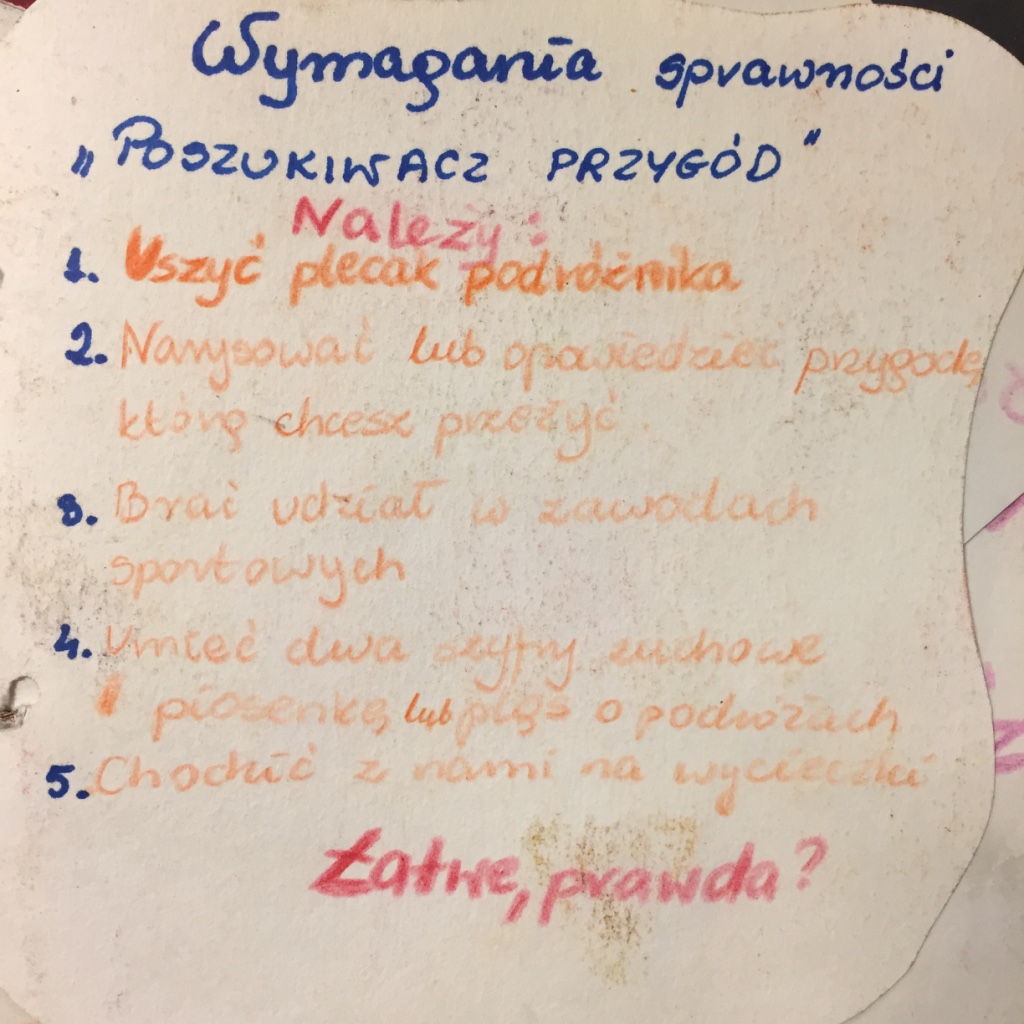 Wymagania sprawności
„Poszukiwacz przygód"
Należy:
1. Uszyć plecak podróżnika
2. Narysować lub opowiedzieć przygodę,
którą chcesz przeżyć.
3. Brać udział w zawodach
sportowych
4. Umieć dwa szyfry zuchowe
i piosenkę lub pląs o podróżach
5. Chodzić z nami na wycieczki
Łatwe, prawda?